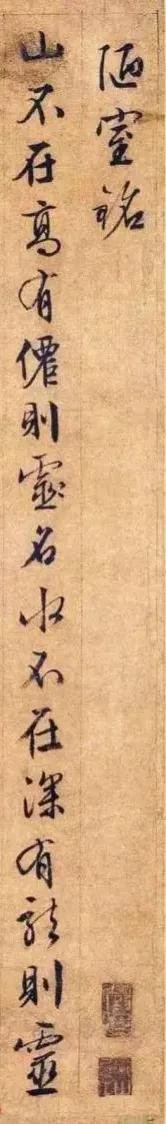 陋室銘
山不在高有僊則靈名水不在深有龍則靈